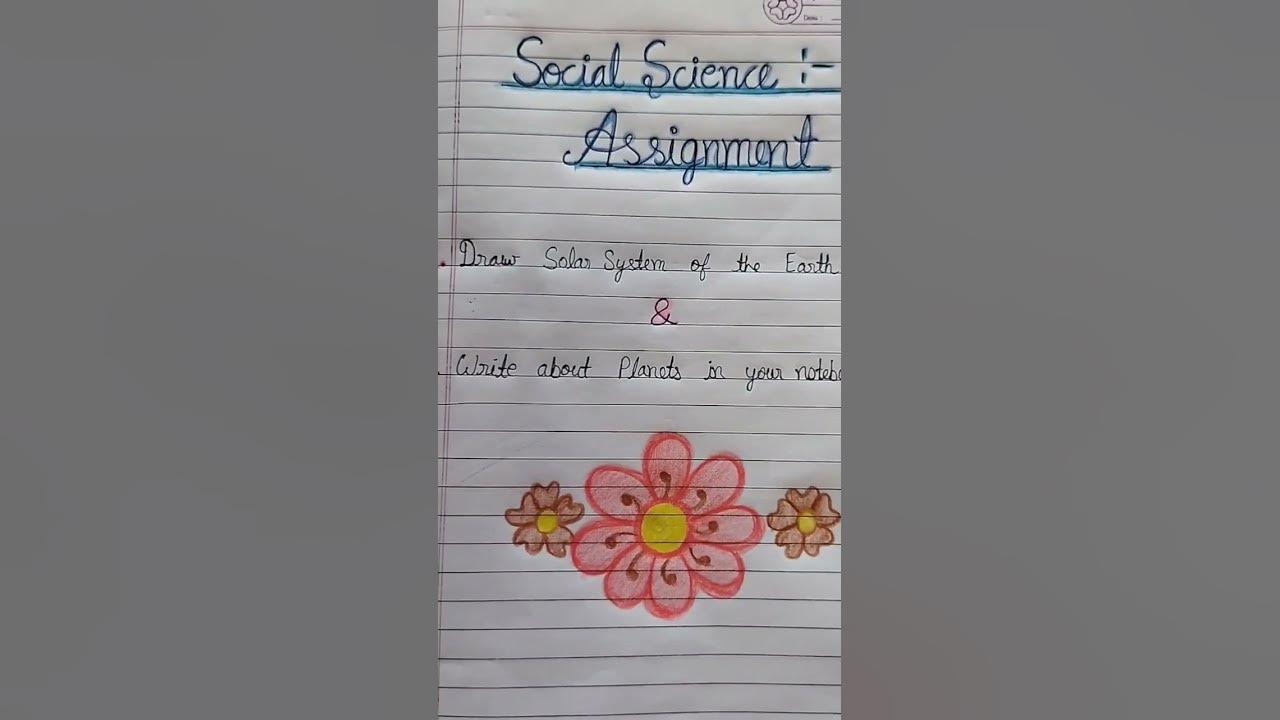 Date :
Social Science :-
Assignment
Draw Solar System of the Earth
&
Write about Planets in your